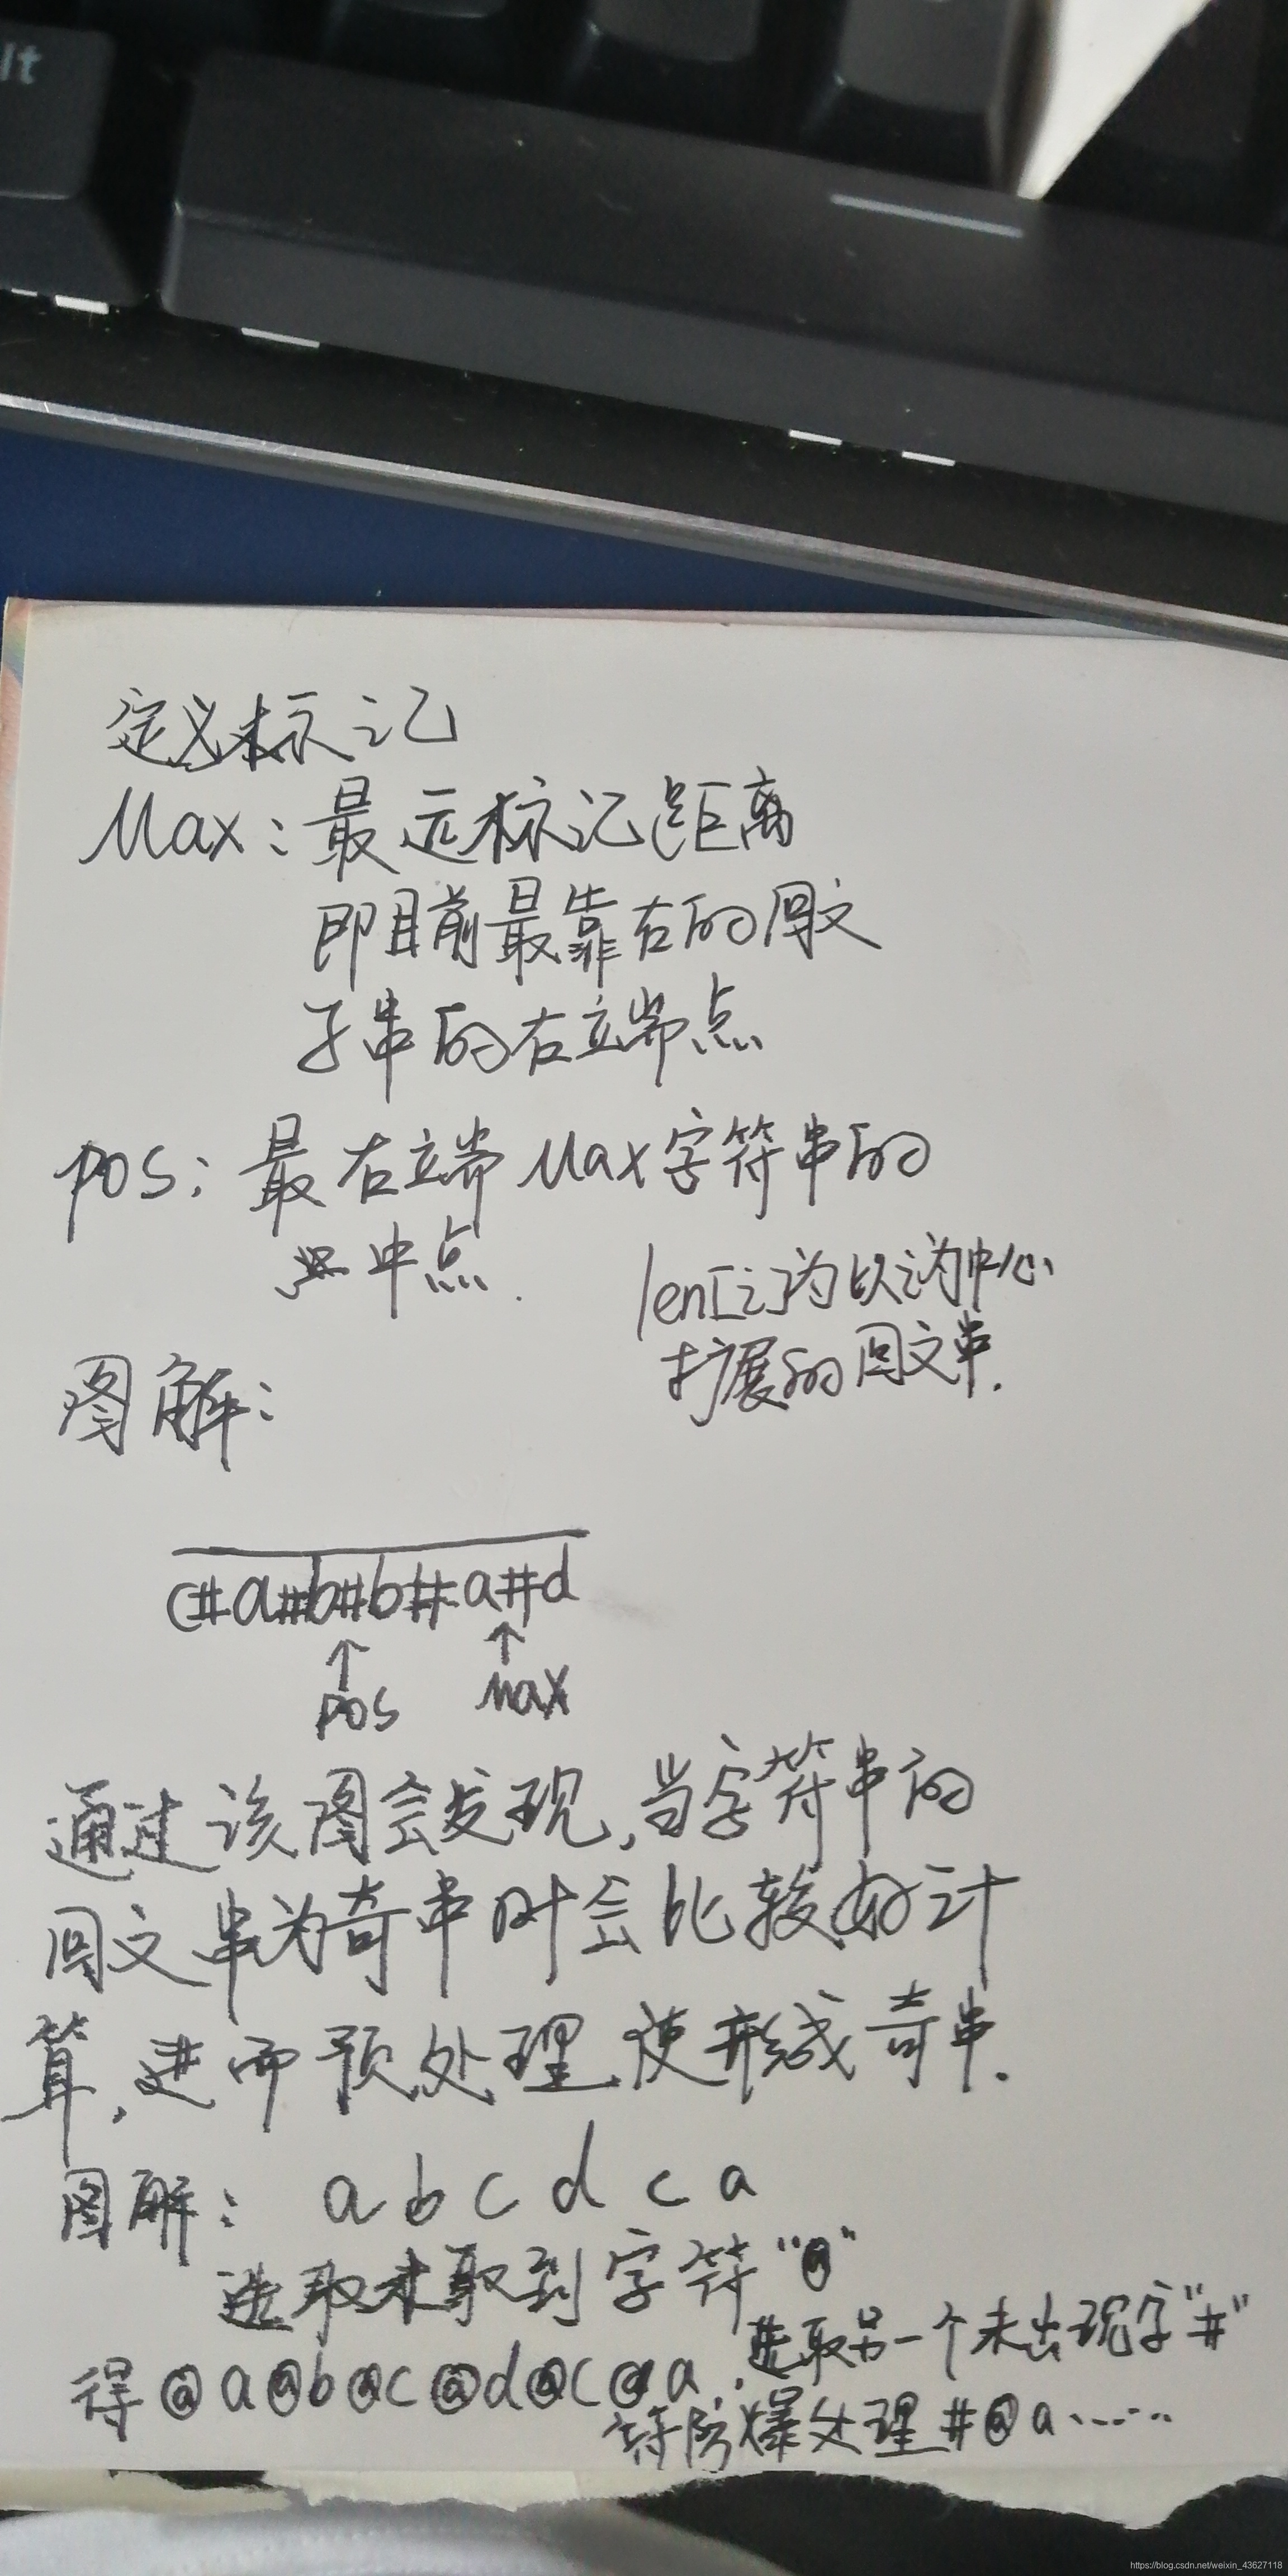 lt
定义标记
Max：最远标记距离
即目前最靠右的回文
子串的右端点
pos：最右端Max字符串的
中点.
len[i]为以i为中心
扩展的回文串.
图解：
c#a#b#b#a#d
↑ ↑
pos max
通过该图会发现,当字符串的
回文串为奇串时会比较好计
算,进而预处理,使形成奇串.
图解： a b c d c a
选取未取到字符“@”
得@a@b@c@d@c@a,选取另一个未出现字"#"
符防爆处理#@a......
https://blog.csdn.net/weixin_43627118